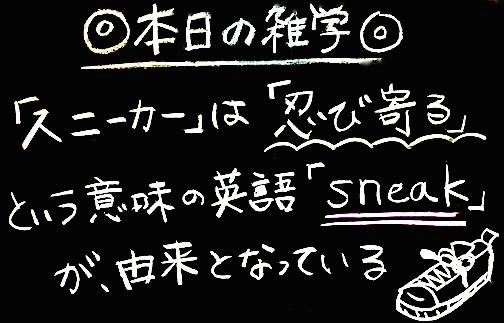 ◎本日の雑学◎
「スニーカー」は「忍び寄る」
という意味の英語「sneak」
が、由来となっている